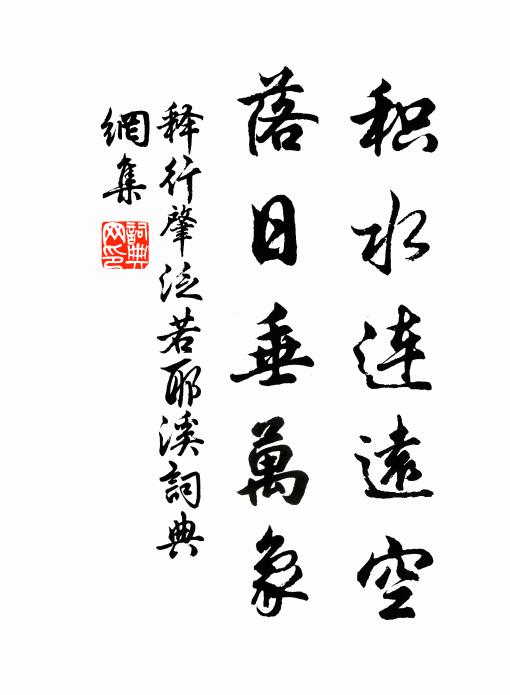 积水连遠空
落日垂萬象
释行肇泛若耶溪詞典
網集
詞典
网印